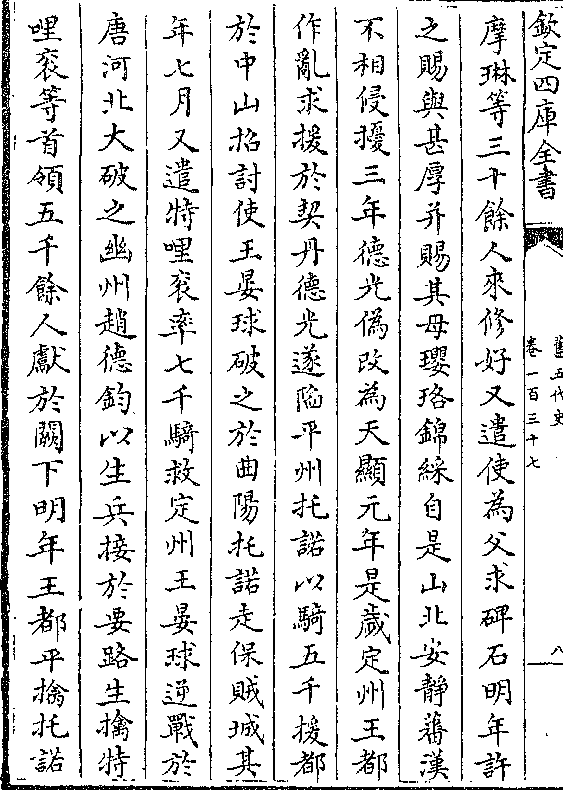 欽定四庫全書
舊五代史
卷一百三十七
八
摩琳等三十餘人來修好又遣使為父求碑石明年許
之賜與甚厚并賜其母瓔珞錦綵自是山北安靜蕃漢
不相侵擾三年德光偽改為天顯元年是歲定州王都
作亂求援於契丹德光遂陷平州托諾以騎五千援都
於中山招討使王晏球破之於曲陽托諾走保賊城其
年七月又遣特哩衮率七千騎救定州王晏球逆戰於
唐河北大破之幽州趙德鈞以生兵接於要路生擒特
哩衮等首領五千餘人獻於闕下明年王都平擒托諾